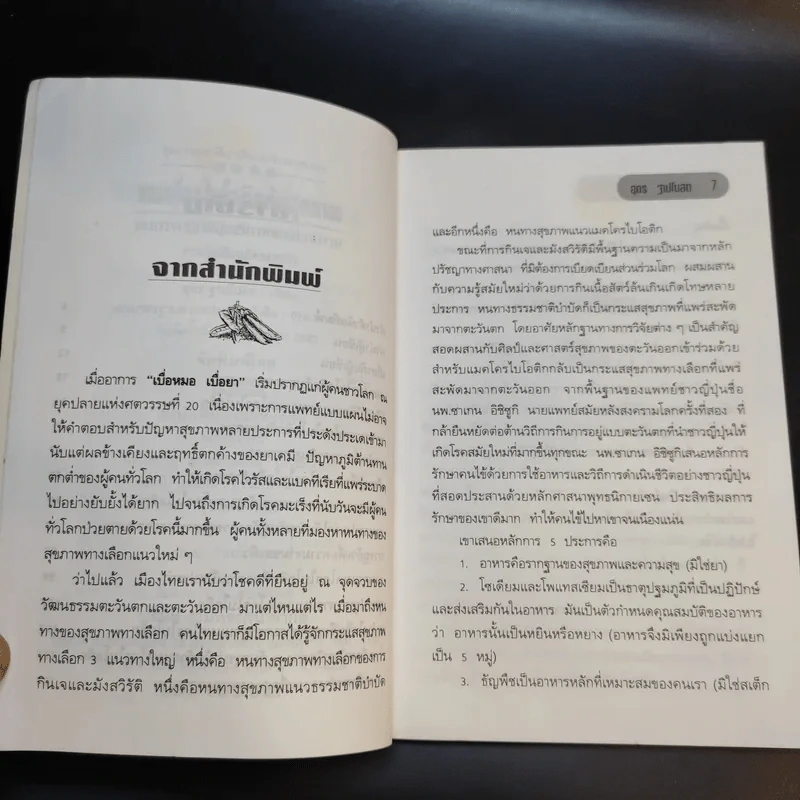 จากสำนักพิมพ์
เมื่ออาการ “เบื่อหมอ เบื่อยา” เริ่มปรากฏแก่ผู้คนชาวโลก ณ
ยุคปลายแห่งศตวรรษที่ 20 เนื่องเพราะการแพทย์แบบแผนไม่อาจ
ให้คำตอบสำหรับปัญหาสุขภาพหลายประการที่ประดังประเดเข้ามา
นับแต่ผลข้างเคียงและฤทธิ์ตกค้างของยาเคมี ปัญหาภูมิต้านทาน
ตกต่ำของผู้คนทั่วโลก ทำให้เกิดโรคไวรัสและแบคทีเรียที่แพร่ระบาด
ไปอย่างยับยั้งได้ยาก ไปจนถึงการเกิดโรคมะเร็งที่นับวันจะมีผู้คน
ทั่วโลกป่วยตายด้วยโรคนี้มากขึ้น ผู้คนทั้งหลายที่มองหาหนทางของ
สุขภาพทางเลือกแนวใหม่ ๆ
ว่าไปแล้ว เมืองไทยเรานับว่าโชคดีที่ยืนอยู่ ณ จุดจวบของ
วัฒนธรรมตะวันตกและตะวันออก มาแต่ไหนแต่ไร เมื่อมาถึงหน
ทางของสุขภาพทางเลือก คนไทยเราก็มีโอกาสได้รู้จักกระแสสุขภาพ
ทางเลือก 3 แนวทางใหญ่ หนึ่งคือ หนทางสุขภาพทางเลือกของการ
กินเจและมังสวิรัติ หนึ่งคือหนทางสุขภาพแนวธรรมชาติบำบัด
สุดร ฐาปโนสถ 7
และอีกหนึ่งคือ หนทางสุขภาพแนวแมคโครไบโอติก
ขณะที่การกินเจและมังสวิรัติมีพื้นฐานความเป็นมาจากหลัก
ปรัชญาทางศาสนา ที่มิต้องการเบียดเบียนส่วนร่วมโลก ผสมผสาน
กับความรู้สมัยใหม่ว่าด้วยการกินเนื้อสัตว์ล้นเกินเกิดโทษหลาย
ประการ หนทางธรรมชาติบำบัดก็เป็นกระแสสุขภาพที่แพร่สะพัด
มาจากตะวันตก โดยอาศัยหลักฐานทางการวิจัยต่าง ๆ เป็นสำคัญ
สอดผสานกับศิลป์และศาสตร์สุขภาพของตะวันออกเข้าร่วมด้วย
สำหรับแมคโครไบโอติกกลับเป็นกระแสสุขภาพทางเลือกที่แพร่
สะพัดมาจากตะวันออก จากพื้นฐานของแพทย์ชาวญี่ปุ่นชื่อ
นพ.ซาเกน อิชิซูกิ นายแพทย์สมัยหลังสงครามโลกครั้งที่สอง ที่
กล้ายืนหยัดต่อต้านวิถีการกินการอยู่แบบตะวันตกที่นำชาวญี่ปุ่นให้
เกิดโรคสมัยใหม่ที่มากขึ้นทุกขณะ นพ.ซาเกน อิชิซูกิเสนอหลักการ
รักษาคนไข้ด้วยการใช้อาหารและวิถีการดำเนินชีวิตอย่างชาวญี่ปุ่น
ที่สอดประสานด้วยหลักศาสนาพุทธนิกายเซน ประสิทธิผลการ
รักษาของเขาดีมาก ทำให้คนไข้ไปหาเขาจนเนืองแน่น
เขาเสนอหลักการ 5 ประการคือ
1. อาหารคือรากฐานของสุขภาพและความสุข (มิใช่ยา)
2. โซเดียมและโพแทสเซียมเป็นธาตุปฐมภูมิที่เป็นปฏิปักษ์
และส่งเสริมกันในอาหาร มันเป็นตัวกำหนดคุณสมบัติของอาหาร
ว่า อาหารนั้นเป็นหยินหรือหยาง (อาหารจึงมิเพียงถูกแบ่งแยก
เป็น 5 หมู่)
3. ธัญพืชเป็นอาหารหลักที่เหมาะสมของคนเรา (มิใช่สเต็ก